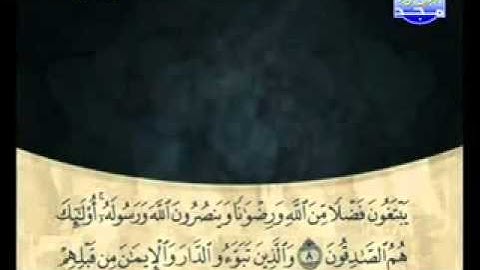 مجد
يَبْتَغُونَ فَضْلًا مِّنَ ٱللَّهِ وَرِضْوَٰنًا وَيَنصُرُونَ ٱللَّهَ وَرَسُولَهُۥٓ ۚ أُو۟لَـٰٓئِكَ
هُمُ ٱلصَّـٰدِقُونَ ٨ وَٱلَّذِينَ تَبَوَّءُو ٱلدَّارَ وَٱلْإِيمَـٰنَ مِن قَبْلِهِمْ